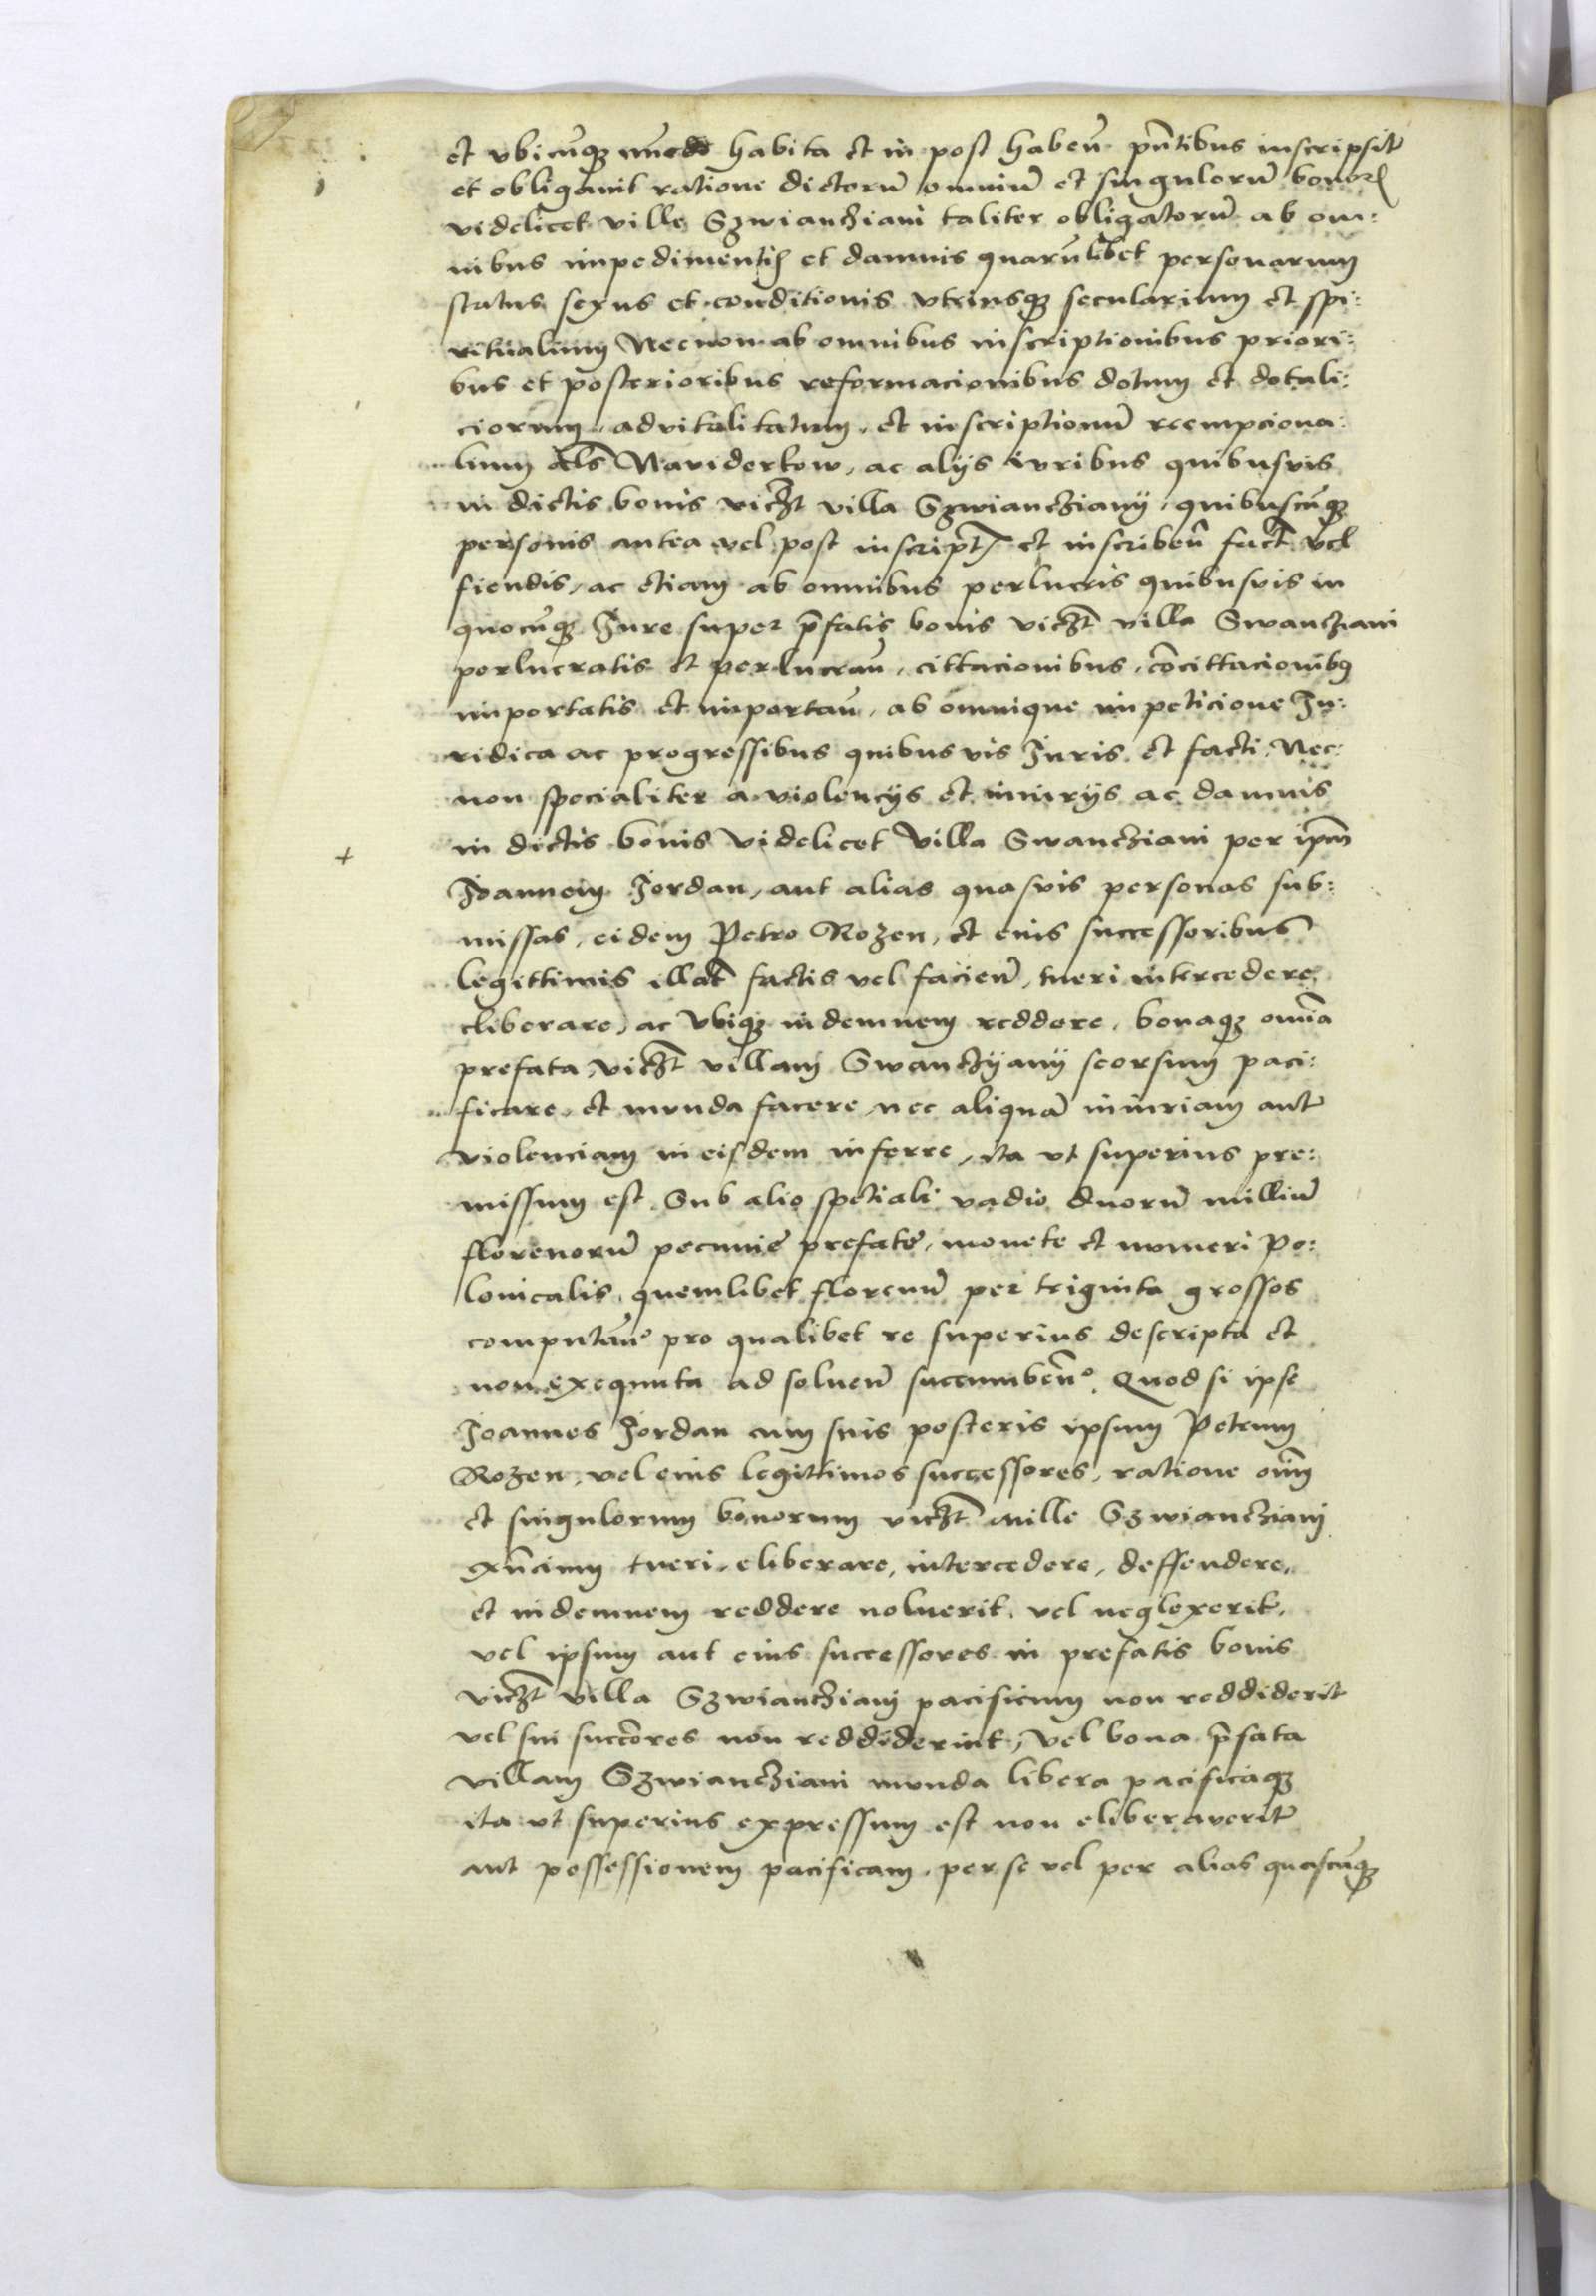 et vbicūq3 nuncdo habita et in post habeñ p̄ntibus inscripsit
et obligauit ratione dictorū omniū et singulorū bonor
videlicet ville Szwiancziani taliter obligatorū ab om:
nibus impedimentis et damnis quarūlibet personarum
status sexus et conditionis vtriusq3 secularium et spi:
ritualium Necnon ab omnibus inscriptionibus priori:
bus et posterioribus reformacionibus dotum et dotali:
ciorum, aduitalitatum, et inscriptionū reempciona:
lium als Naviderkow, ac alijs iuribus quibusvis
in dictis bonis vicz̄t villa Szwianczianij, quibuscūq3
personis antea vel post inscript̄ et inscribeñ fact̄ vel
fiendis, ac etiam ab omnibus perlucris quibusvis in
quocūq3 Jure super p̄fatis bonis vicz̄t villa Swancziani
perlucratis et perlucrañ, cittacionibus, cōcittacionib9
importatis et importañ, ab omnique impeticione Ju:
ridica ac progressibus quibusvis Juris et facti, Nec:
non specialiter a violencijs et iniurijs ac damnis
in dictis bonis videlicet villa Swancziani per ip̄m
Joannem Jordan, aut alias quasvis personas sub:
missas, eidem Petro Rozen, et eius successoribus
legittimis illat̄ factis vel facieñ, tueri intercedere
eliberare, ac vbiq3 indemnem reddere, bonaq3 om̄ia
prefata vicz̄t villam Swanczÿanÿ seorsum paci:
ficare et munda facere, nec aliquā iniuriam aut
violenciam in eisdem inferre, ita vt superius pre:
missum est Sub alio spetiali vadio duorū milliū
florenorū pecunie prefate, monete et numeri Po:
lonicalis, quemlibet florenū per triginta grossos
computañ° pro qualibet re superius descripta et
non exequuta ad solueñ succumbeñ°. Quod si ipse
Joannes Jordan cum suis posteris ipsum Petrum
Rozen, vel eius legittimos successores, ratione om̄m
et singulorum bonorum vicz̄t ville Szwiancziani
p̄n̄cium tueri, eliberare, intercedere, deffendere,
et indemnem reddere noluerit, vel neglexerit,
vel ipsum aut eius successores in prefatis bonis
vicz̄t villa Szwiancziani pacificum non reddiderit
vel sui succōres non reddiderint, vel bona p̄fata
villam Szwiancziani munda libera pacificaq3
ita vt superius expressum est non eliberauerit
aut possessionem pacificam, per se vel per alias quascūq3
+